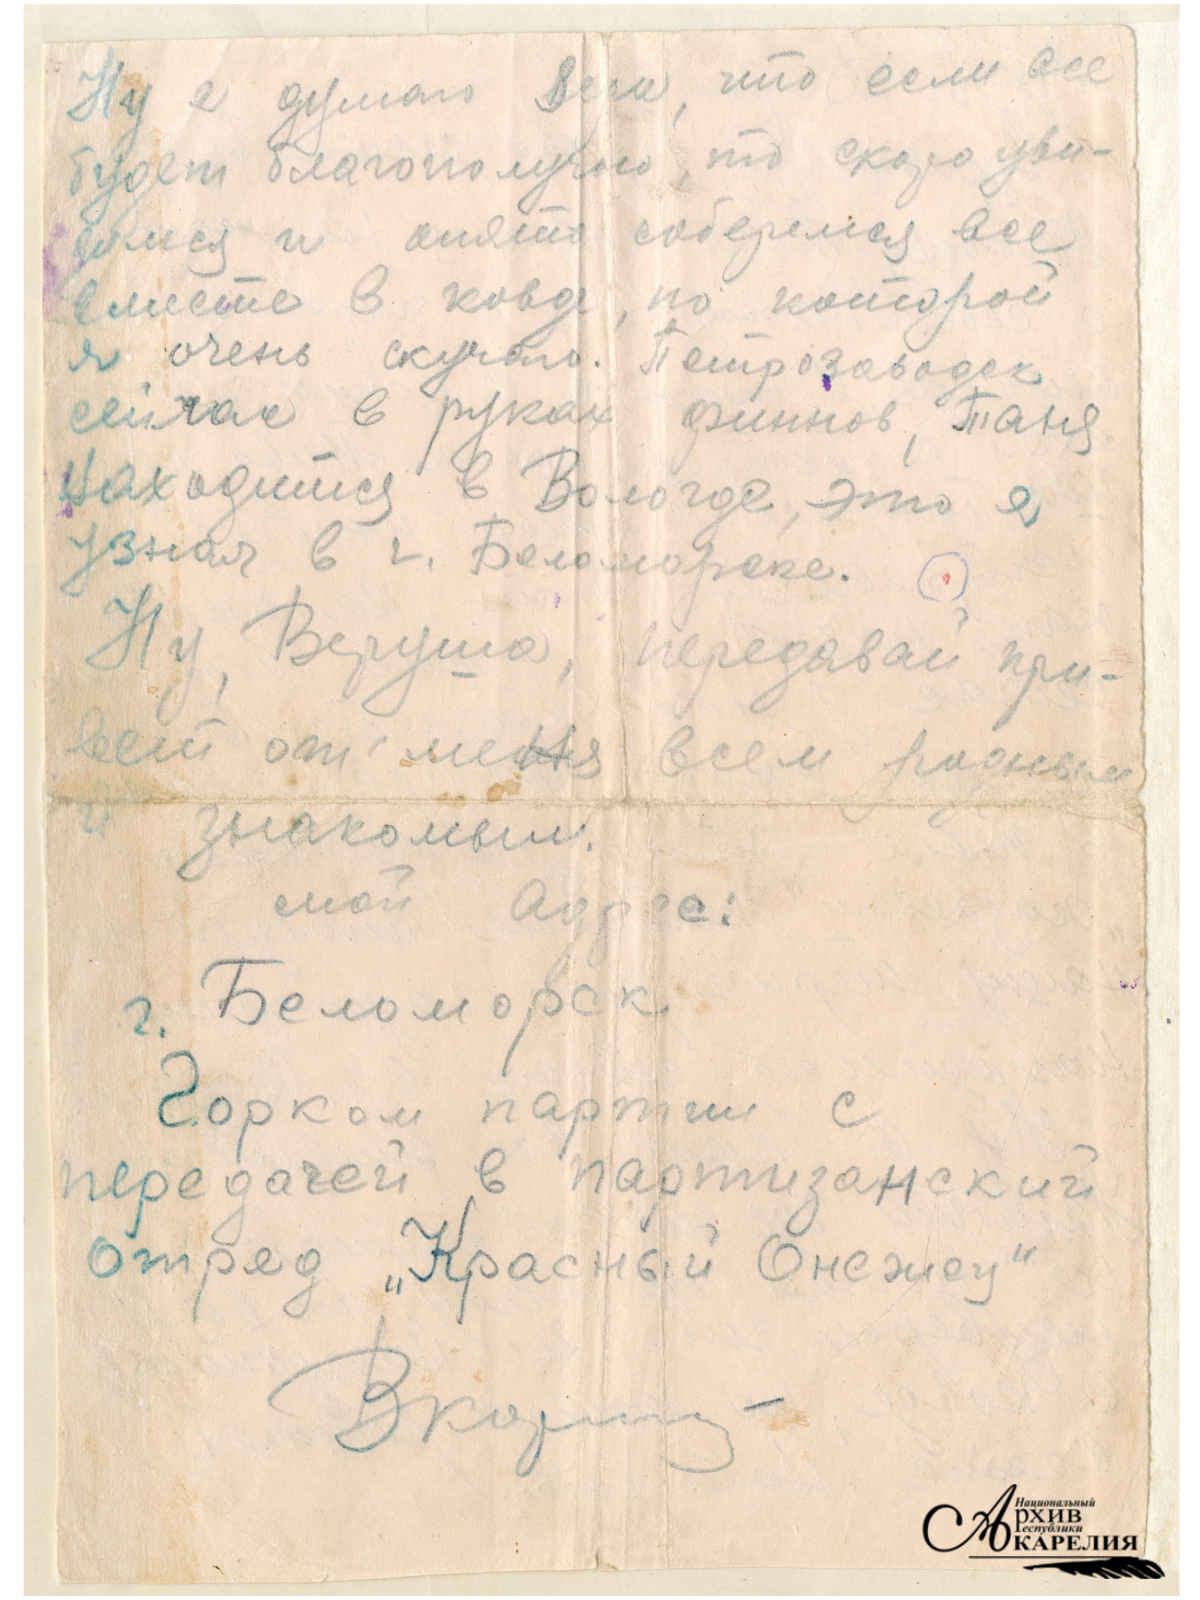 Ну я думаю Вера, что если все
будет благополучно, то скоро уви-
димся и опять соберемся все
вместе в Ковде, по которой
я очень скучаю. Петрозаводск
сейчас в руках финнов, Таня
находится в Вологде, это я
узнал в г. Беломорске.
Ну, Веруша, передавай при-
вет от меня всем родным
и знакомым.
мой адрес:
г. Беломорск
Горком партии с
передачей в партизанский
отряд „Красный Онежец"
Национальный
Архив
Республики
Карелия